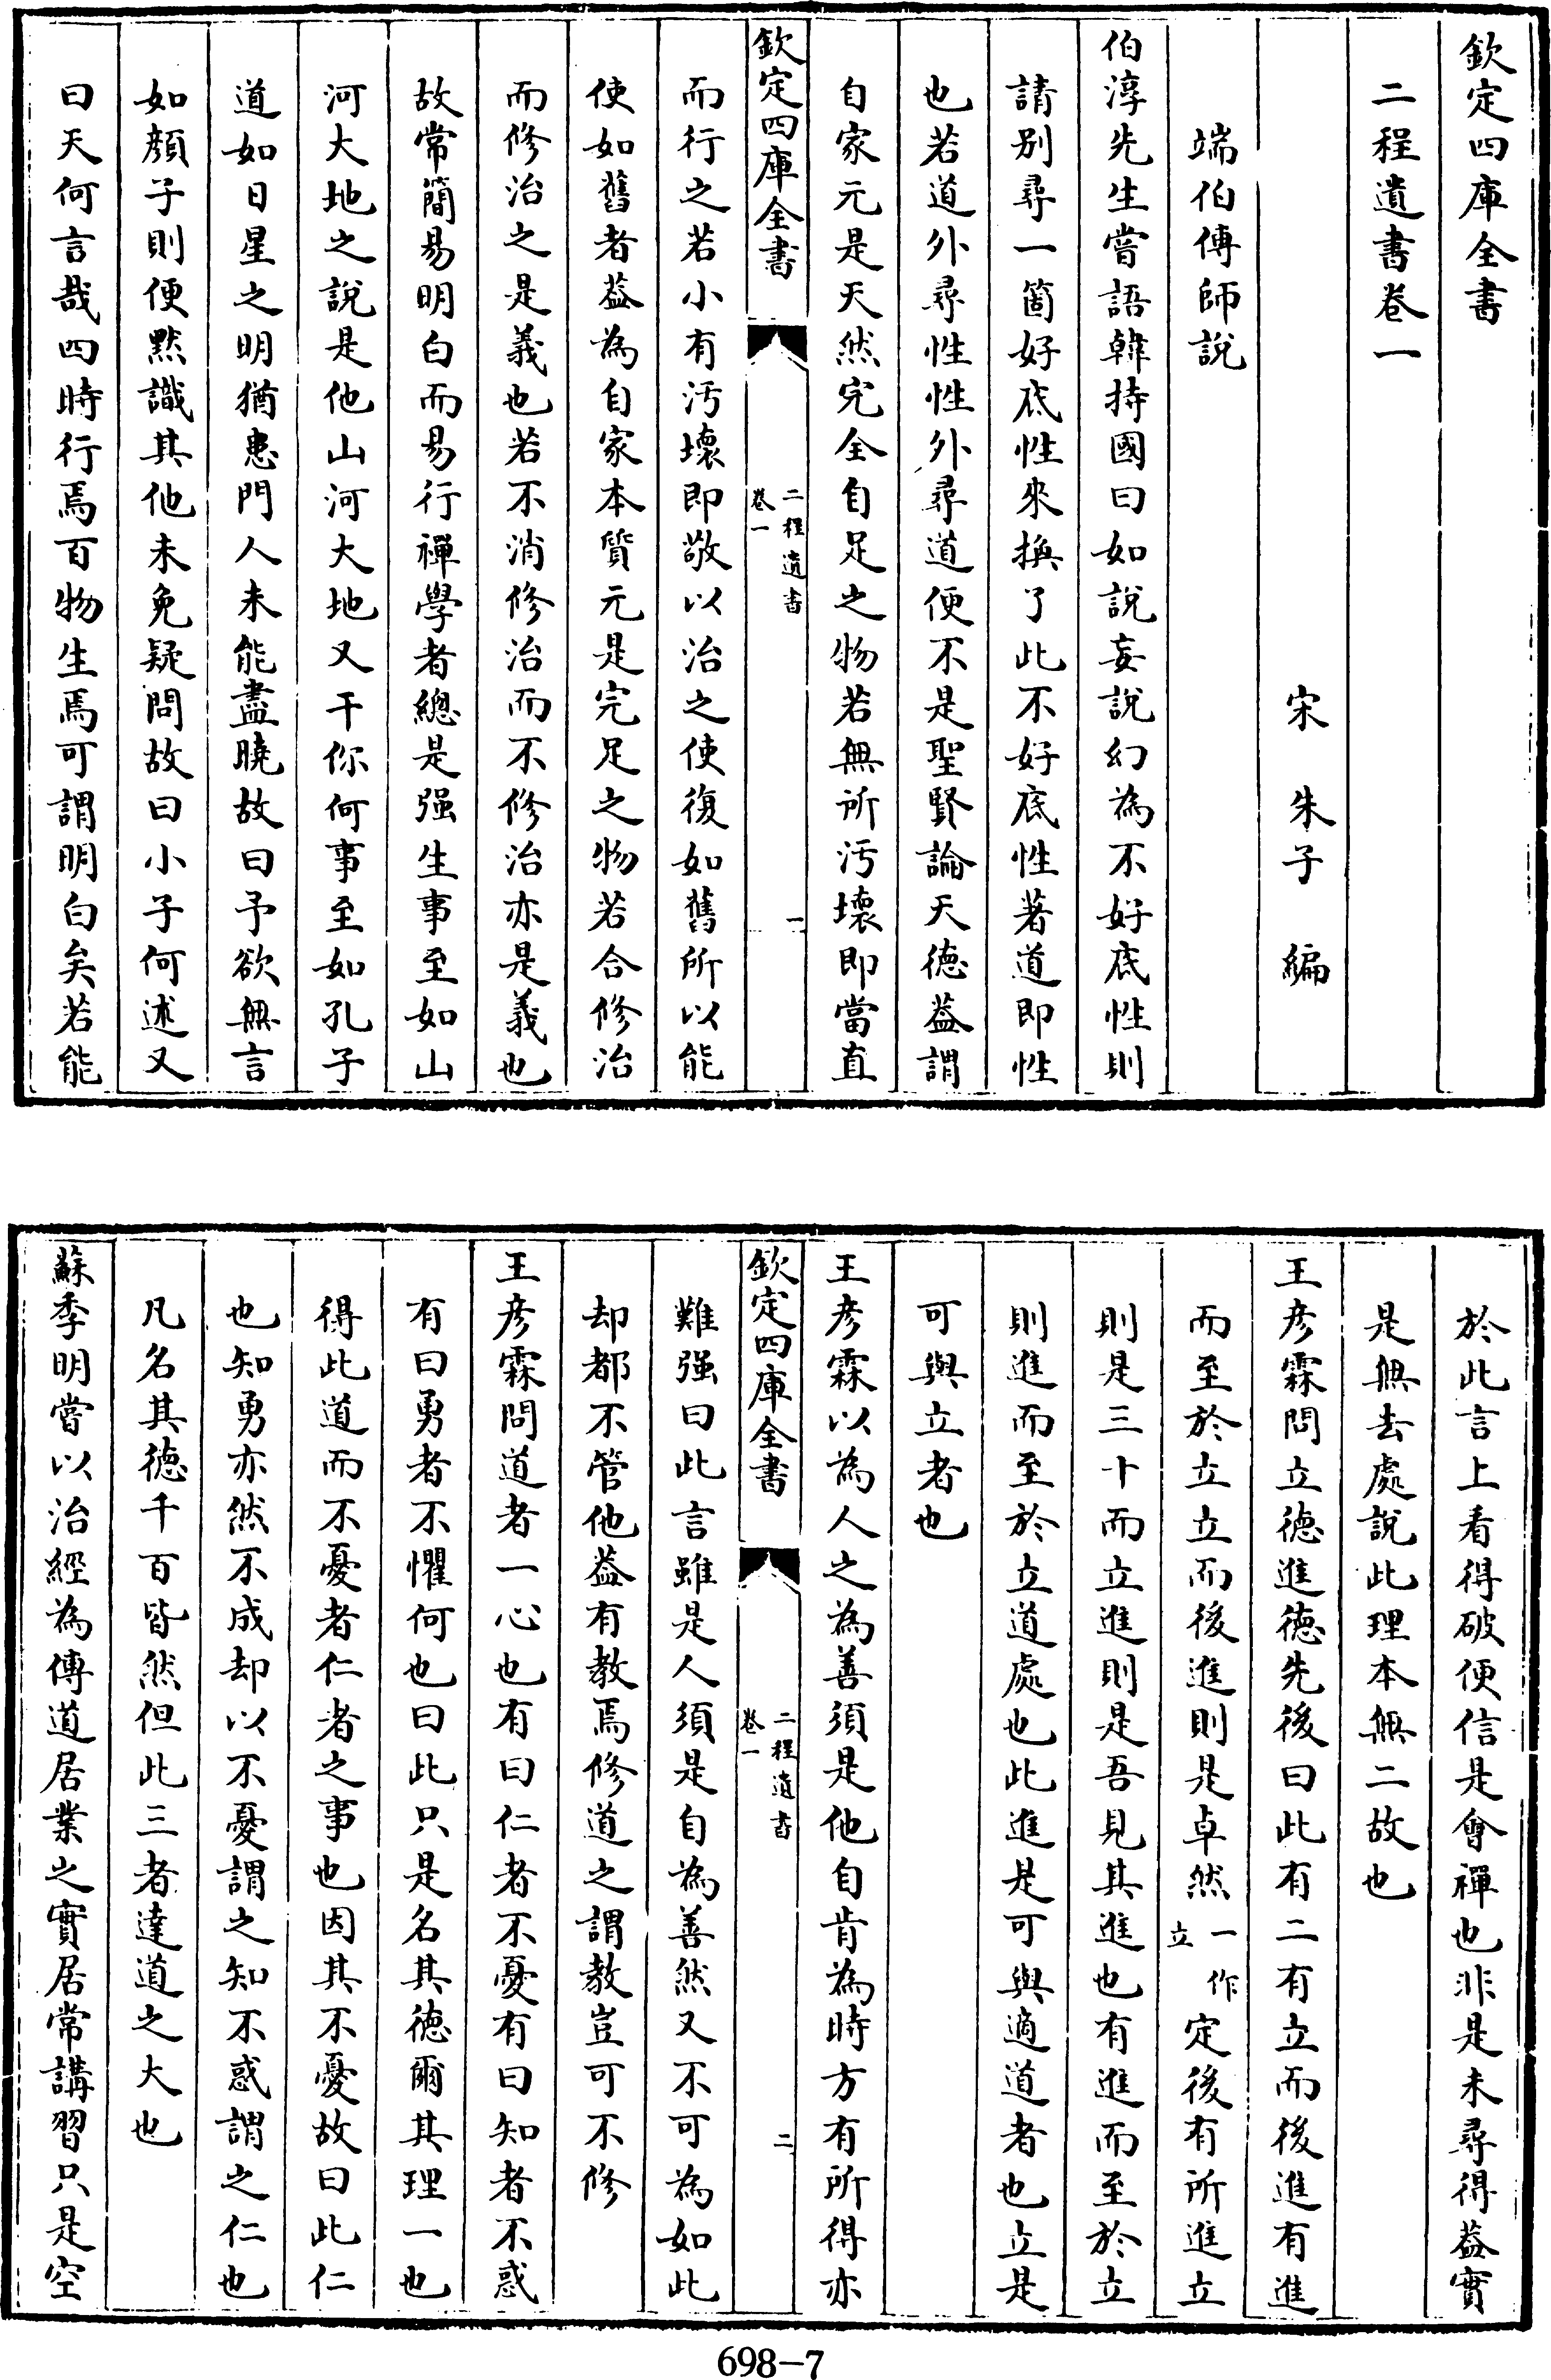 欽定四庫全書
二程遺書卷一
宋 朱子 編
端伯傳師說
伯淳先生嘗語韓持國曰如說妄說幻為不好底性則
請別尋一箇好底性來換了此不好底性著道即性
也若道外尋性性外尋道便不是聖賢論天德葢謂
自家元是天然完全自足之物若無所污壞即當直
欽定四庫全書
二程遺書
卷一
一
而行之若小有污壞即敬以治之使復如舊所以能
使如舊者葢為自家本質元是完足之物若合修治
而修治之是義也若不消修治而不修治亦是義也
故常簡易明白而易行禪學者總是强生事至如山
河大地之說是他山河大地又干你何事至如孔子
道如日星之明猶患門人未能盡曉故曰予欲無言
如顏子則便默識其他未免疑問故曰小子何述又
曰天何言哉四時行焉百物生焉可謂明白矣若能
於此言上看得破便信是會禪也非是未尋得葢實
是無去處說此理本無二故也
王彦霖問立德進德先後曰此有二有立而後進有進
而至於立立而後進則是卓然一作立定後有所進立
則是三十而立進則是吾見其進也有進而至於立
則進而至於立道處也此進是可與適道者也立是
可與立者也
王彦霖以為人之為善須是他自肯為時方有所得亦
欽定四庫全書
二程遺書
卷一
二
難强曰此言雖是人須是自為善然又不可為如此
却都不管他葢有教焉修道之謂教豈可不修
王彦霖問道者一心也有曰仁者不憂有曰知者不惑
有曰勇者不懼何也曰此只是名其德爾其理一也
得此道而不憂者仁者之事也因其不憂故曰此仁
也知勇亦然不成却以不憂謂之知不惑謂之仁也
凡名其德千百皆然但此三者達道之大也
蘇季明嘗以治經為傳道居業之實居常講習只是空
698-7